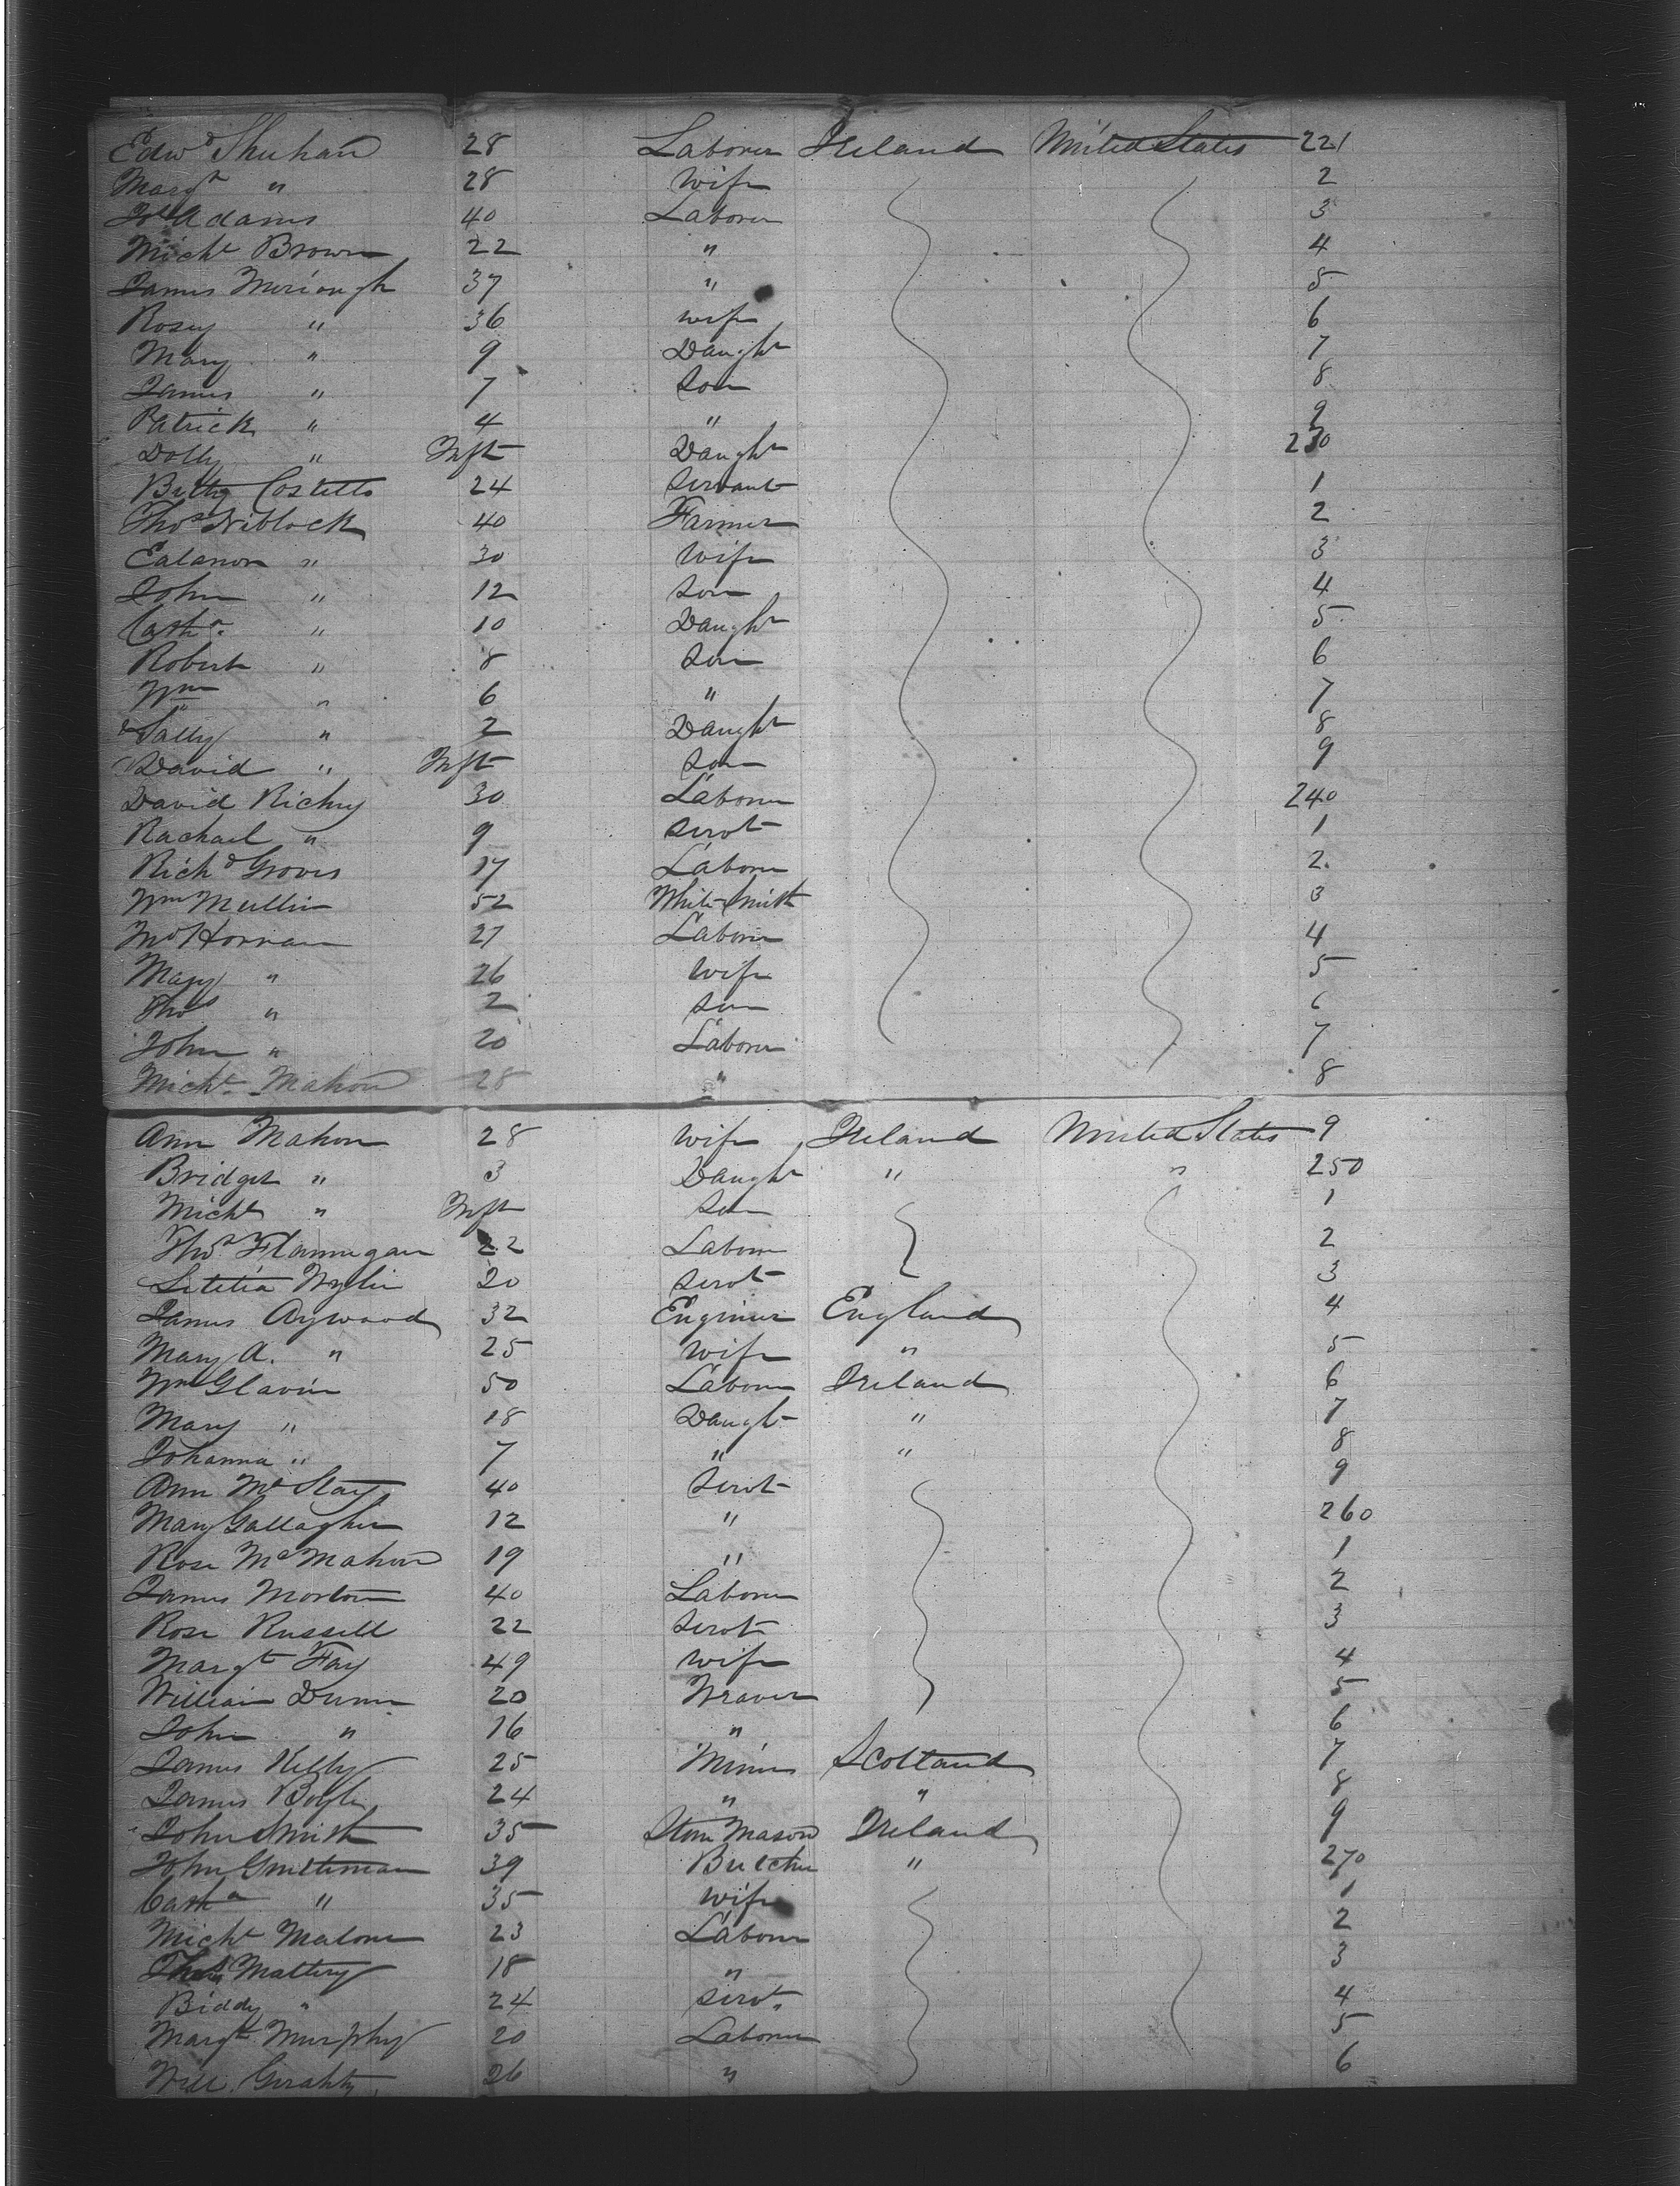 Edwd Shuhan 28 Laborer Ireland United States 221
Margt " 28 Wife 2
Jos Adams 40 Laborer 3
Michl Brown 22 " 4
James Moriough 37 " 5
Rosey " 36 Wife 6
Mary " 9 Daughr 7
James " 7 Son 8
Patrick " 4 " 9
Dolly " Inft Daughr 230
Betty Costello 24 Servant 1
Thos Niblock 40 Farmer 2
Ealanor " 30 Wife 3
John " 12 Son 4
Cathe. " 10 Daughr 5
Robert " 8 Son 6
Wm " 6 " 7
Sally " 2 Daughr 8
David " Inft Son 9
David Richey 30 Laborer 240
Rachael " 9 Servt 1
Richd Groves 17 Laborer 2
Wm Mullin 52 White Smith 3
Jno Horran 27 Laborer 4
Mary " 26 Wife 5
Thos " 2 Son 6
John " 20 Laborer 7
Michl Mahon 28 " 8
Ann Mahon 28 Wife Ireland United States 9
Bridget " 3 Daughr " " 250
Michl " Inft Son 1
Thos Flannugan 22 Laborer 2
Letetia Wylie 20 Servt 3
James Aywood 32 Engineer England 4
Mary A. " 25 Wife " 5
Wm Glavin 50 Laborer Ireland 6
Mary " 18 Daught " 7
Johanna " 7 " " 8
Ann McStay 40 Servt 9
Mary Gallagher 12 " 260
Rose McMahon 19 " 1
James Morton 40 Laborer 2
Rose Russell 22 Servt 3
Margt Fay 49 Wife 4
William Dunn 20 Weaver 5
John " 16 " 6
James Kelly 25 Miner Scotland 7
James Boyle 24 " " 8
John Smith 35 Stone Mason Ireland 9
John Gentleman 39 Butcher " 270
Cathe " 35 Wife 1
Michl Malone 23 Laborer 2
Thos Mattery 18 " 3
Biddy " 24 Servt. 4
Margt Murphy 20 Laborer 5
Will. Gerahty 26 " 6